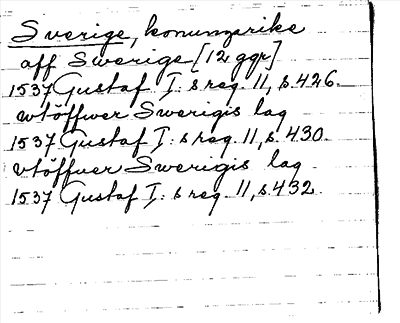 Sverige, konungarike
aff Swerige [12 ggr]
1537 Gustaf I: s reg. 11, s. 426.
wtöffwer Swerigis lag
1537 Gustaf I: s reg. 11, s. 430.
vtöffuer Swerigis lag
1537 Gustaf I: s reg. 11, s. 432.